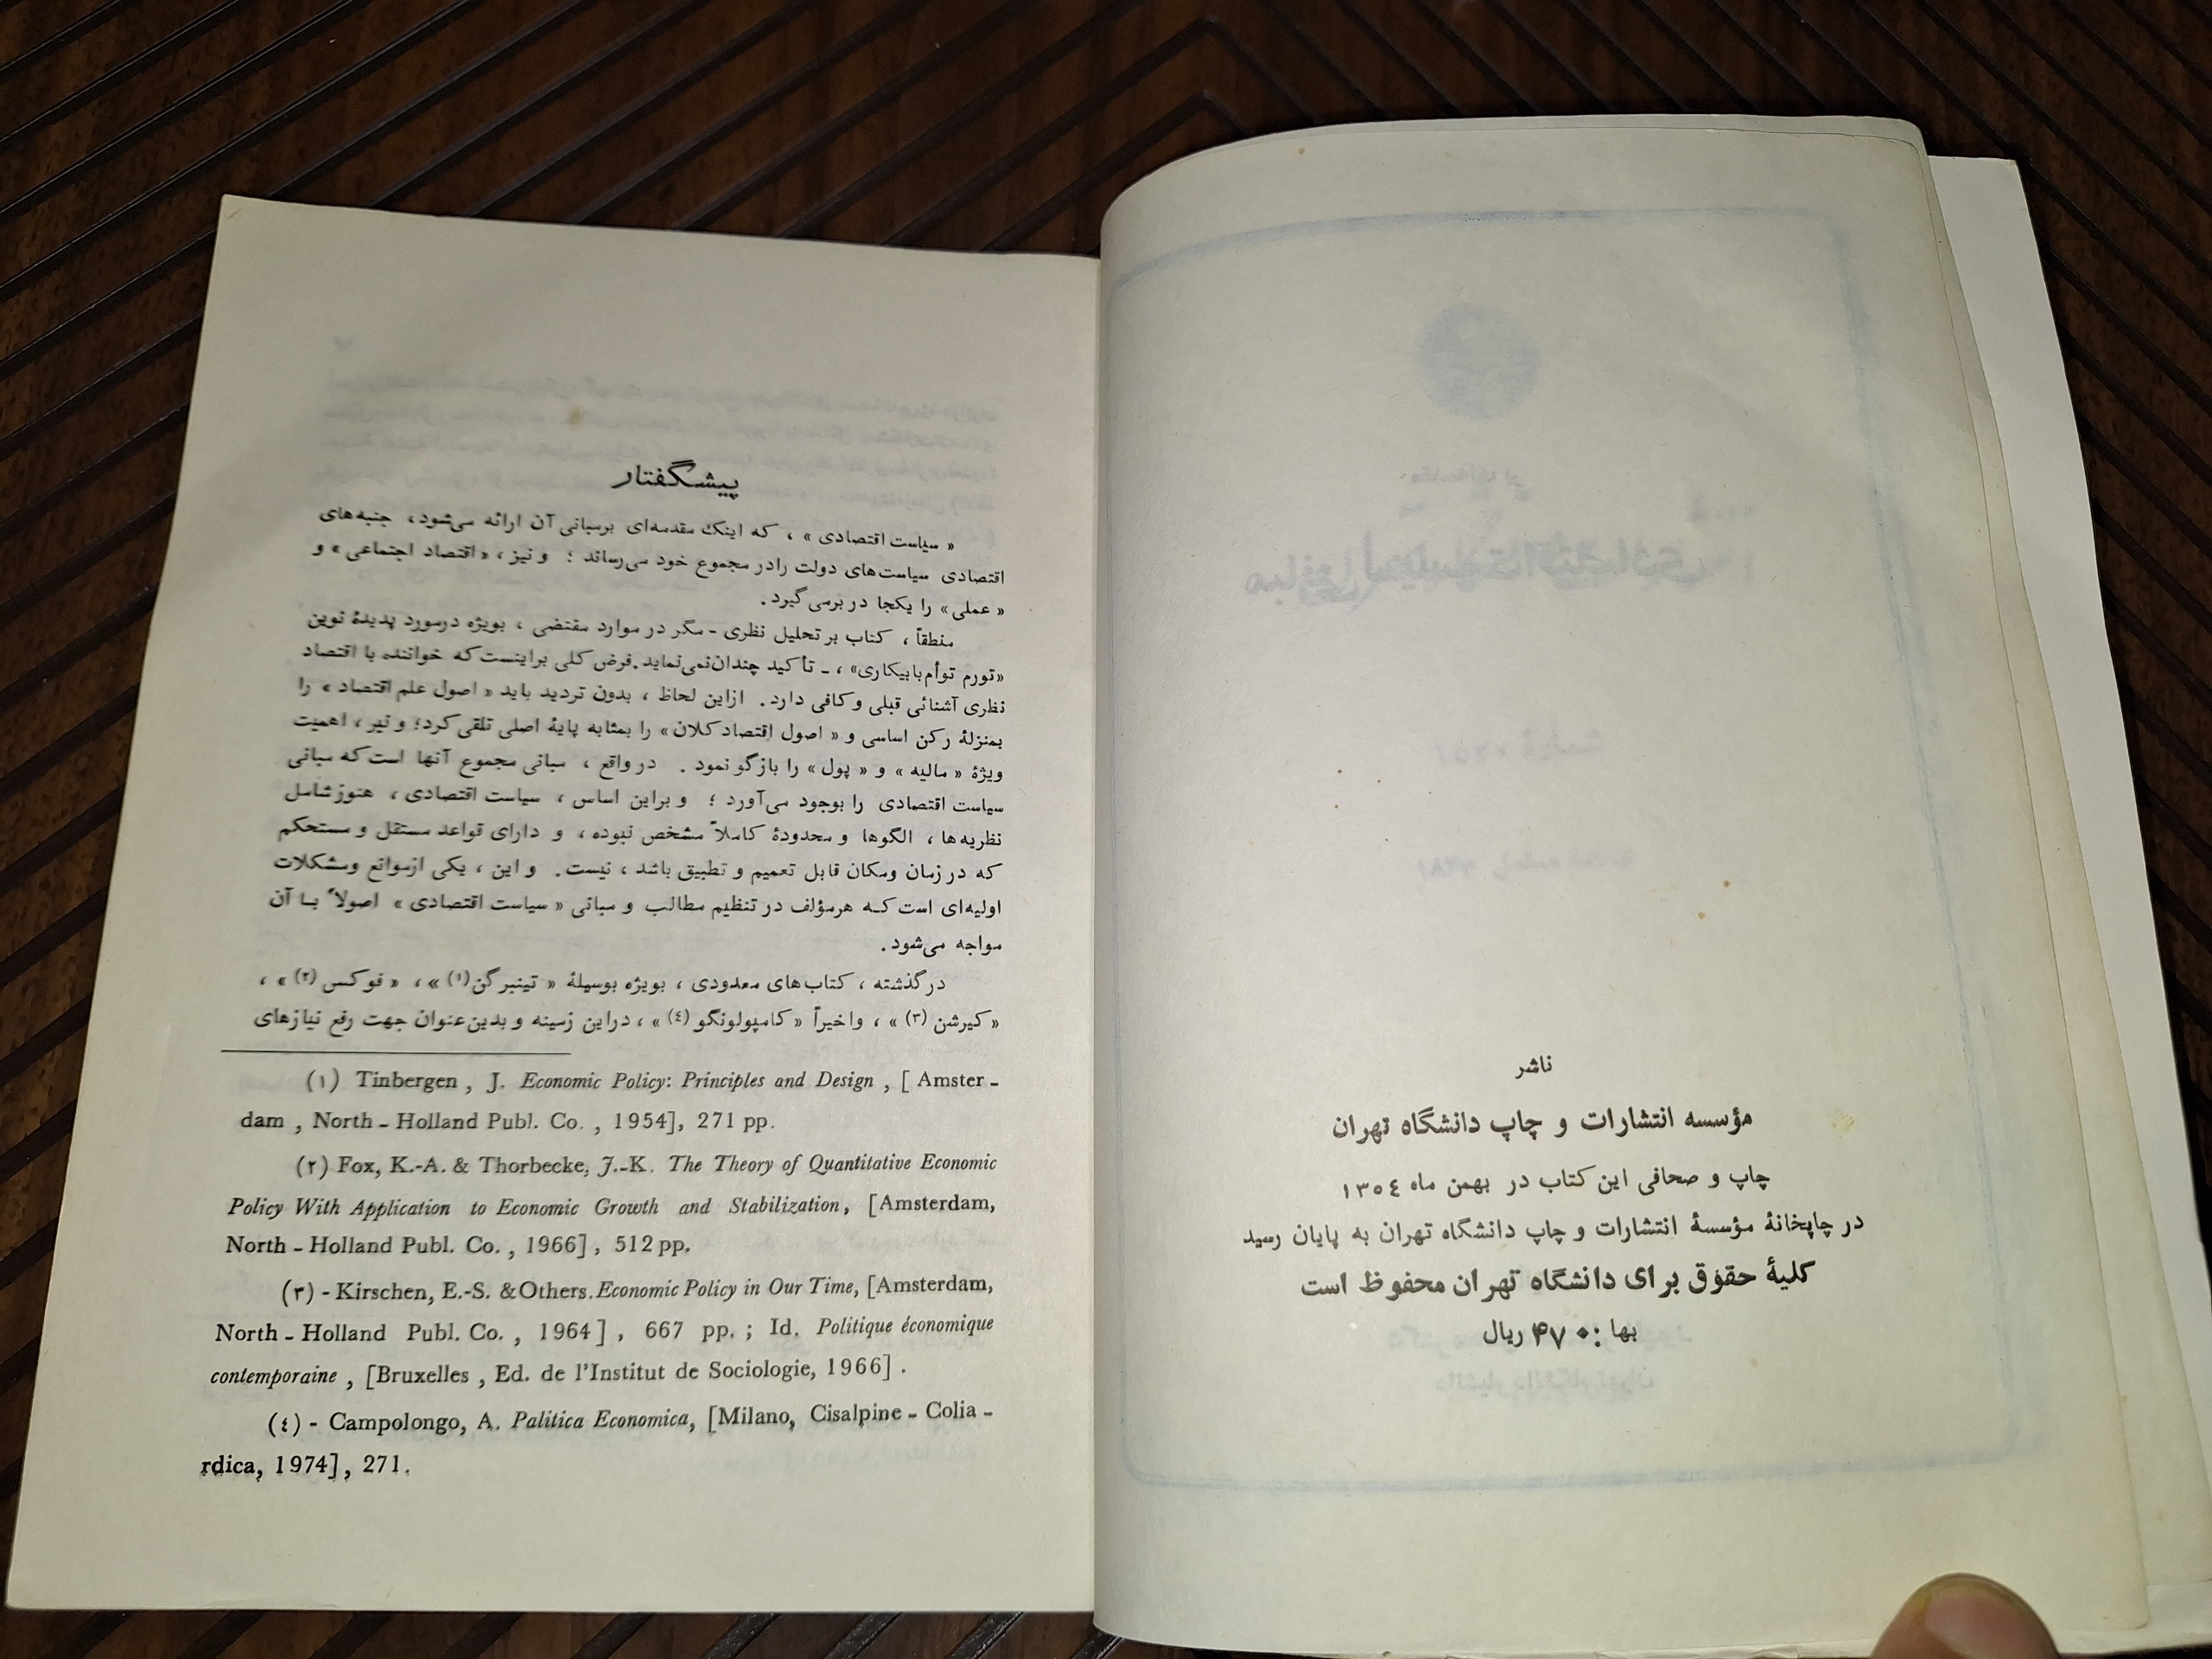 ناشر
مؤسسه انتشارات و چاپ دانشگاه تهران
چاپ و صحافی این کتاب در بهمن ماه ۱۳٥٤
در چاپخانهٔ مؤسسهٔ انتشارات و چاپ دانشگاه تهران به پایان رسید
کلیهٔ حقوق برای دانشگاه تهران محفوظ است
بها : ۴۷۰ ریال
پیشگفتار
« سیاست اقتصادی » ، که اینک مقدمه‌ای برمبانی آن ارائه می‌شود، جنبه‌های
اقتصادی سیاست‌های دولت را در مجموع خود می‌رساند ؛ و نیز ، «اقتصاد اجتماعی » و
« عملی» را یکجا در برمی گیرد.
منطقاً ، کتاب بر تحلیل نظری - مگر در موارد مقتضی ، بویژه درمورد پدیدهٔ نوین
«تورم توأم بابیکاری» ، ـ تأکید چندان نمی‌نماید. فرض کلی براینست که خواننده با اقتصاد
نظری آشنائی قبلی و کافی دارد. ازاین لحاظ ، بدون تردید باید « اصول علم اقتصاد » را
بمنزلهٔ رکن اساسی و « اصول اقتصاد کلان» را بمثابه پایهٔ اصلی تلقی کرد؛ و نیر ، اهمیت
ویژهٔ « مالیه » و « پول » را بازگو نمود . در واقع ، مبانی مجموع آنها است که مبانی
سیاست اقتصادی را بوجود می‌آورد ؛ و براین اساس ، سیاست اقتصادی ، هنوز شامل
نظریه‌ها ، الگوها و محدودهٔ کاملاً مشخص نبوده ، و دارای قواعد مستقل و مستحکم
که در زمان ومکان قابل تعمیم و تطبیق باشد ، نیست. و این ، یکی ازموانع ومشکلات
اولیه‌ای است کـه هرمؤلف در تنظیم مطالب و مبانی « سیاست اقتصادی » اصولاً بـا آن
مواجه می‌شود.
در گذشته ، کتاب‌های معدودی ، بویژه بوسیلهٔ « تینبر گن(۱) »، « فوکس (۲) » ،
«کیرشن (۳) » ، واخیراً «کامپولونگو (٤) » ، دراین زمینه و بدین‌عنوان جهت رفع نیازهای
(۱) Tinbergen , J. Economic Policy: Principles and Design , [ Amster -
dam , North - Holland Publ. Co. , 1954], 271 pp.
(۲) Fox, K.-A. & Thorbecke, J.-K. The Theory of Quantitative Economic
Policy With Application to Economic Growth and Stabilization, [Amsterdam,
North - Holland Publ. Co. , 1966] , 512 pp.
(۳) - Kirschen, E.-S. &Others. Economic Policy in Our Time, [Amsterdam,
North - Holland Publ. Co. , 1964] , 667 pp. ; Id. Politique économique
contemporaine , [Bruxelles , Ed. de l'Institut de Sociologie, 1966] .
(٤) - Campolongo, A. Palitica Economica, [Milano, Cisalpine - Colia -
rdica, 1974] , 271.